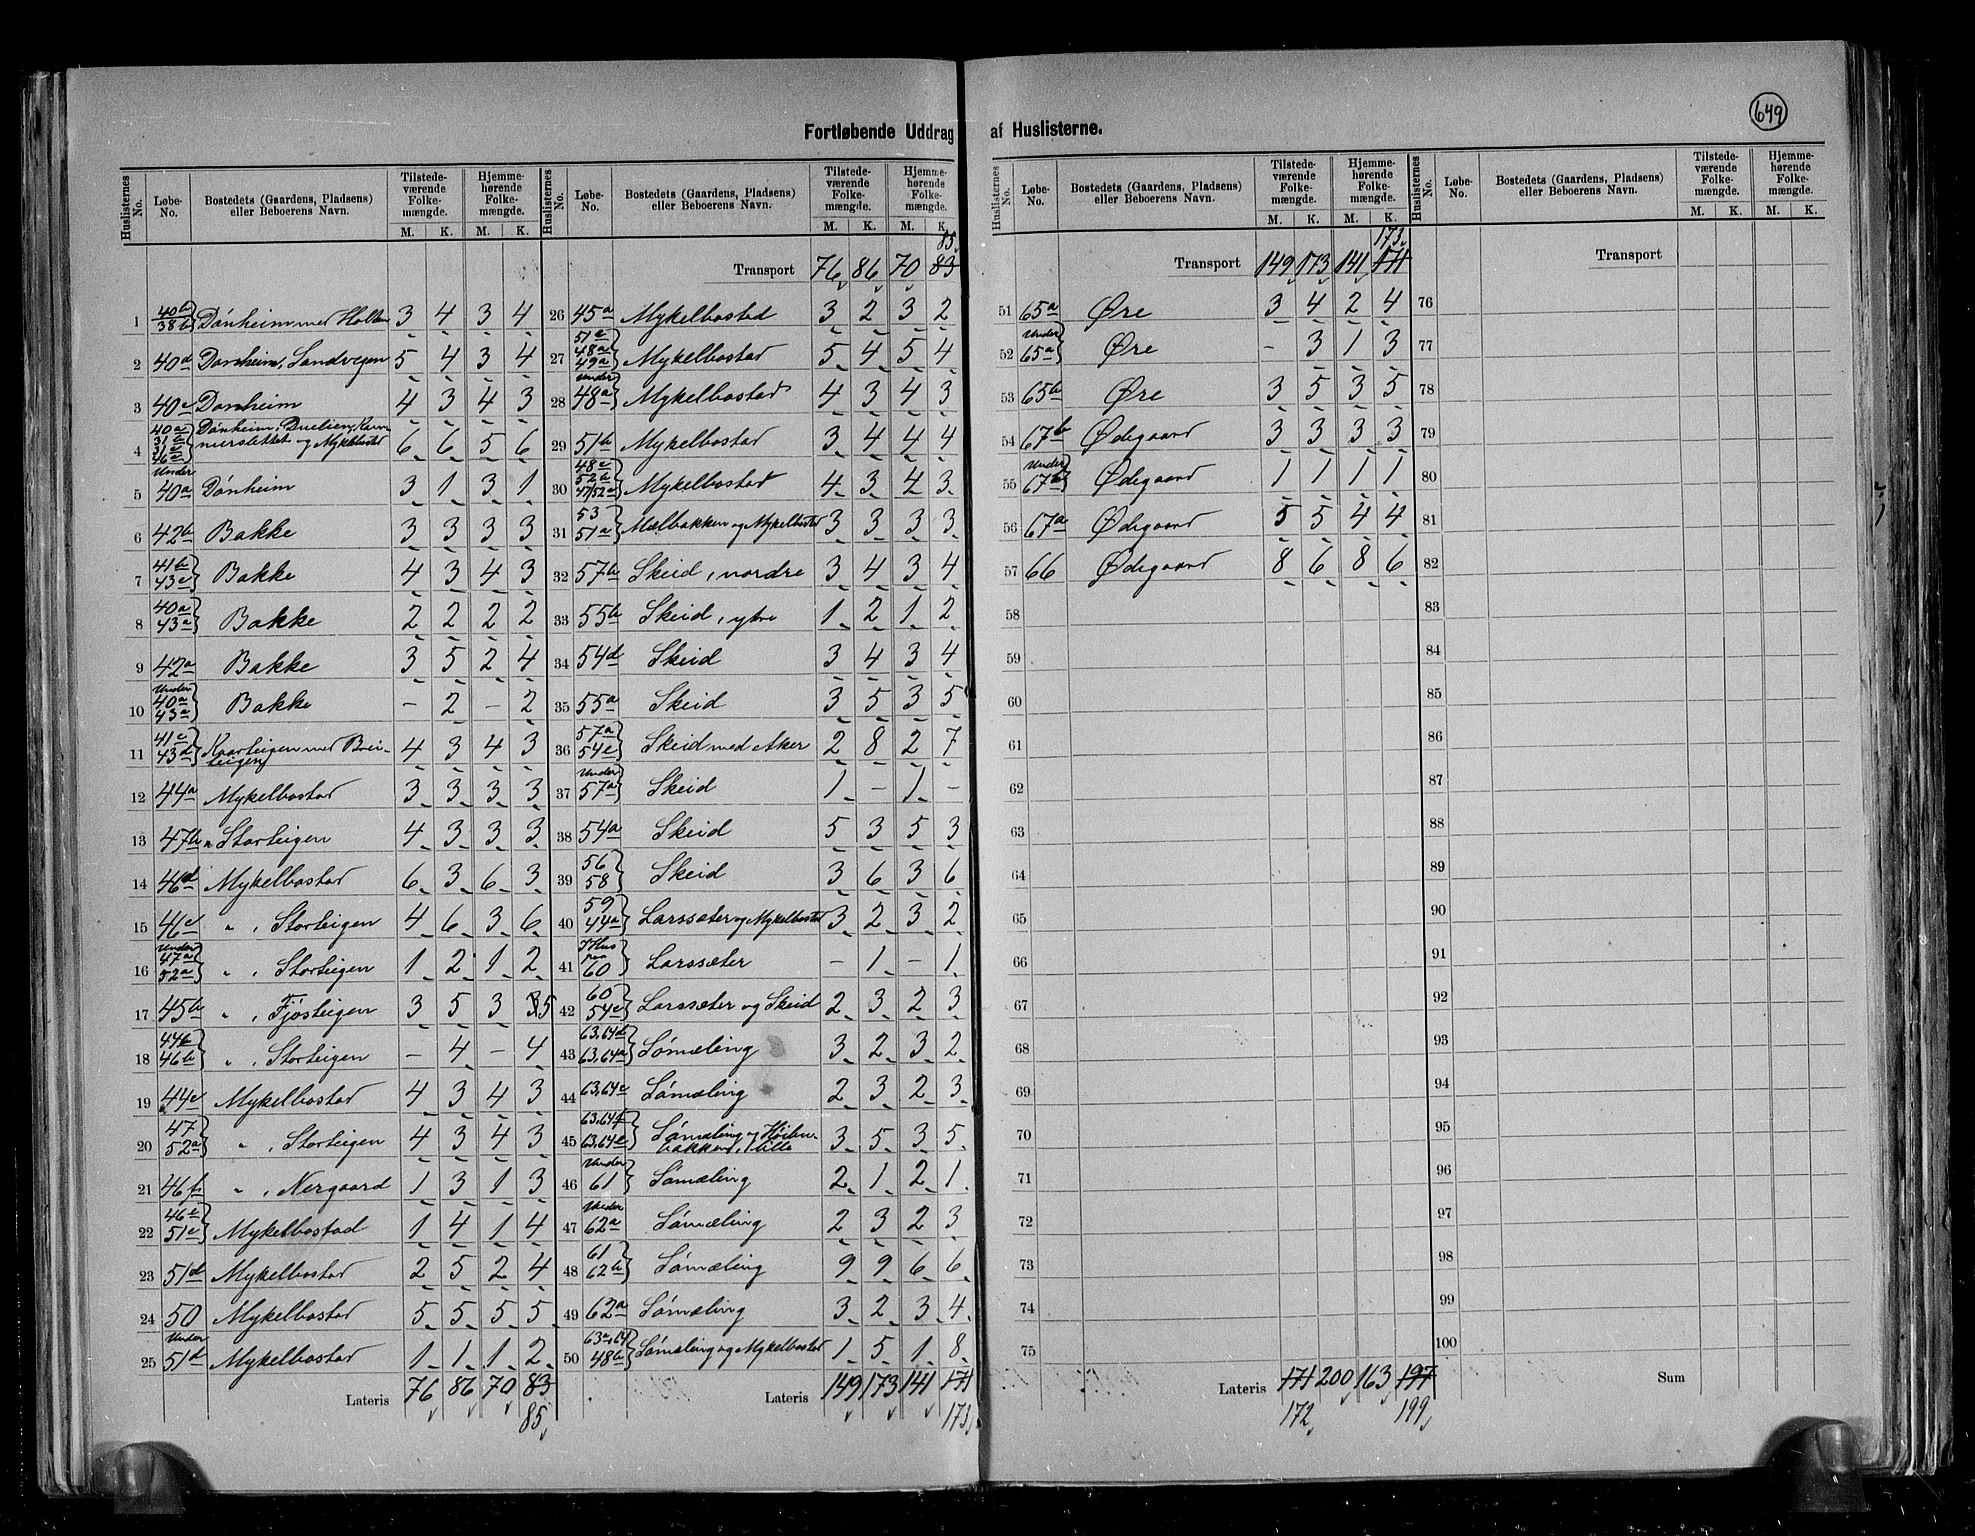 649
Fortløbende Uddrag af Huslisterne.
Huslisternes No. Løbe-No. Bostedets (Gaardens, Pladsens) eller Beboerens Navn. Tilstedeværende Folkemængde. M. K. Hjemmehørende Folkemængde. M. K.
1 40b 38b Dönheim med Holten 3 4 3 4
2 40d Dønheim, Sandvegen 5 4 3 4
3 40c Dønheim 4 3 4 3
4 40a 31b 31c 46c Dönheim, og Mykelbostad 6 6 5 6
5 Under 40a Dönheim 3 1 3 1
6 42b Bakke 3 3 3 3
7 41b 43c Bakke 4 3 4 3
8 40a 43a Bakke 2 2 2 2
9 42a Bakke 3 5 2 4
10 Under 40a 43a Bakke - 2 - 2
11 41c 43d Kaarteigen med Breiteigen 4 3 4 3
12 44a Mykelbostad 3 3 3 3
13 47b " Storteigen 4 3 3 3
14 46d Mykelbostad 6 3 6 3
15 46c " , Storteigen 4 6 3 6
16 Under 47a 52a " , Storteigen 1 2 1 2
17 45b " , Fjösteigen 3 5 3 3 5
18 44b 46b " , Storteigen - 4 - 4
19 44c Mykelbostad 4 3 4 3
20 47 52a " , Storteigen 4 3 4 3
21 46f " , Nergaard 1 3 1 3
22 46e 51c Mykelbostad 1 4 1 4
23 51d Mykelbostad 2 5 2 4
24 50 Mykelbostad 5 5 5 5
25 Under 51d Mykelbostad 1 1 1 2
Lateris 76 86 70 83
85
Huslisternes No. Løbe-No. Bostedets (Gaardens, Pladsens) eller Beboerens Navn. Tilstedeværende Folkemængde. M. K. Hjemmehørende Folkemængde. M. K.
85
Transport 76 86 70 83
26 45a Mykelbostad 3 2 3 2
27 51e 48a 49a Mykelbostad 5 4 5 4
28 Under 48a Mykelbostad 4 3 4 3
29 51b Mykelbostad 3 4 4 4
30 48c 52b 47/52a Mykelbostad 4 3 4 3
31 53 51a Mælbakken og Mykelbostad 3 3 3 3
32 57b Skeid, nordre 3 4 3 4
33 55b Skeid, ytre 1 2 1 2
34 54d Skeid 3 4 3 4
35 55a Skeid 3 5 3 5
36 57a 54c Skeid med Aker 2 8 2 7
37 Under 57a Skeid 1 - 1 -
38 54a Skeid 5 3 5 3
39 56 58 Skeid 3 6 3 6
40 59 44a Larssæter og Mykelbostad 3 2 3 2
41 I Hus paa 60 Larssæter - 1 - 1
42 60 54e Larssæter og Skeid 2 3 2 3
43 63,64d 63,64a Sömæling 3 2 3 2
44 63,64c Sömæling 2 3 2 3
45 63,64f 63,64e Sömæling og Höilenbakken, lille 3 5 3 5
46 Under 61 Sömæling 2 1 2 1
47 Under 62a Sömæling 2 3 2 3
48 61 62b Sömæling 9 9 6 6
49 62a Sömæling 3 2 3 4
50 63a,64 48b Sömæling og Mykelbostad 1 5 1 8
Lateris 149 173 141 171
173
Huslisternes No. Løbe-No. Bostedets (Gaardens, Pladsens) eller Beboerens Navn. Tilstedeværende Folkemængde. M. K. Hjemmehørende Folkemængde. M. K.
173
Transport 149 173 141 171
51 65a Øre 3 4 2 4
52 Under 65a Øre - 3 1 3
53 65b Øre 3 5 3 5
54 67b Ødegaard 3 3 3 3
55 Under 67b Ødegaard 1 1 1 1
56 67a Ødegaard 5 5 4 4
57 66 Ødegaard 8 6 8 6
58
59
60
61
62
63
64
65
66
67
68
69
70
71
72
73
74
75
Lateris 171 200 163 197
172 199
Huslisternes No. Løbe-No. Bostedets (Gaardens, Pladsens) eller Beboerens Navn. Tilstedeværende Folkemængde. M. K. Hjemmehørende Folkemængde. M. K.
Transport
76
77
78
79
80
81
82
83
84
85
86
87
88
89
90
91
92
93
94
95
96
97
98
99
100
Sum